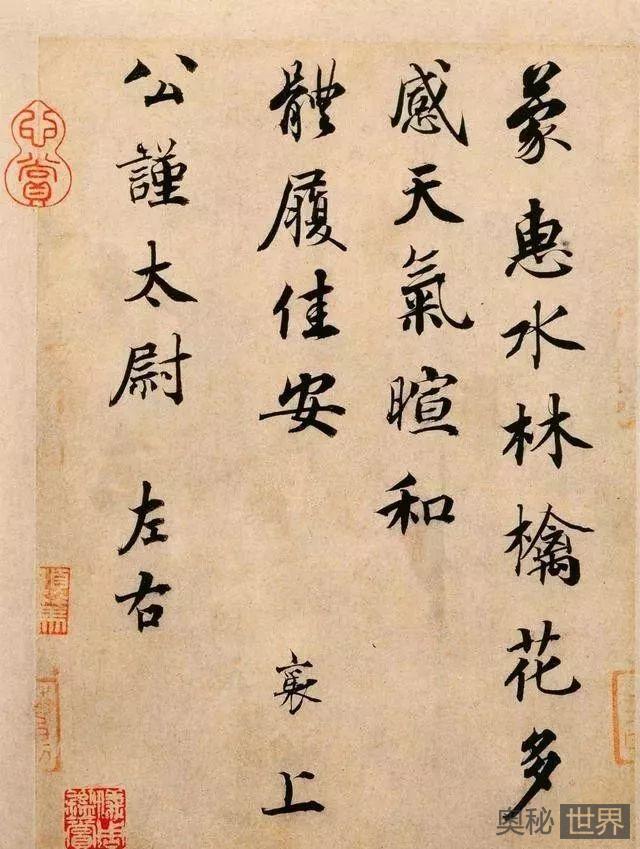 蒙惠水林檎花多
感天氣暄和
體履佳安 襄上
公謹太尉 左右
奥秘世界